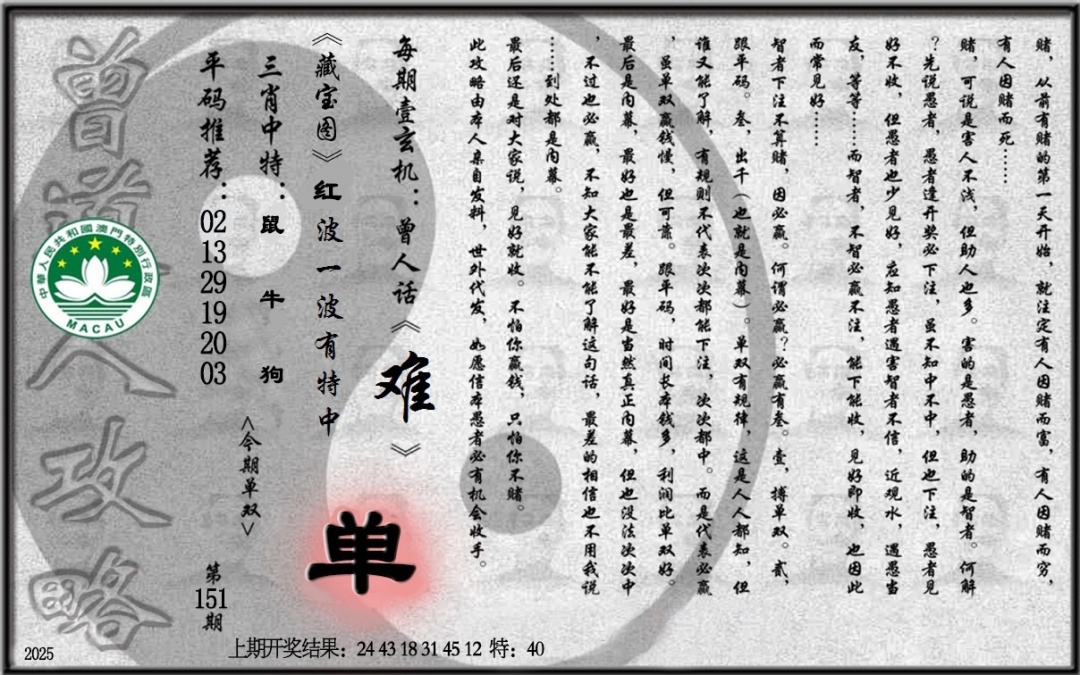 赌，从前有赌的第一天开始，就注定有人因赌而富，有人因赌而穷，
有人因赌而死……
赌，可说是害人不浅，但助人也多。害的是愚者，助的是智者。何解
？先说愚者，愚者逢开奖必下注，虽不知中不中，但也下注，愚者见
好不收，但愚者也少见好，应知愚者遇害智者不信，近观水，遇愚当
友，等等……而智者，不智必赢不注，能下能收，见好即收，也因此
而常见好……
智者下注不算赌，因必赢。何谓必赢？必赢有叁。壹，搏单双。贰，
跟平码。叁，出千（也就是内幕）。单双有规律，这是人人都知，但
谁又能了解，有规则不代表次次都能下注，次次都中。而是代表必赢
，虽单双赢钱慢，但可靠。跟平码，时间长本钱多，利润比单双好。
最后是内幕，最好也是最差，最好是当然真正内幕，但也没法次次中
，不过也必赢，不知大家能不能了解这句话，最差的相信也不用我说
……到处都是内幕。
最后还是对大家说，见好就收。不怕你赢钱，只怕你不赌。
此攻略由本人亲自发料，世外代发，如愿信本愚者必有机会收手。
每期壹玄机：曾人话《难》
《藏宝图》红波一波有特中
单
三肖中特：鼠 牛 狗
<今期单双>
平码推荐：02 13 29 19 20 03
第151期
曾道人攻略
中華人民共和國澳門特別行政區
MACAU
2025
上期开奖结果：24 43 18 31 45 12 特：40